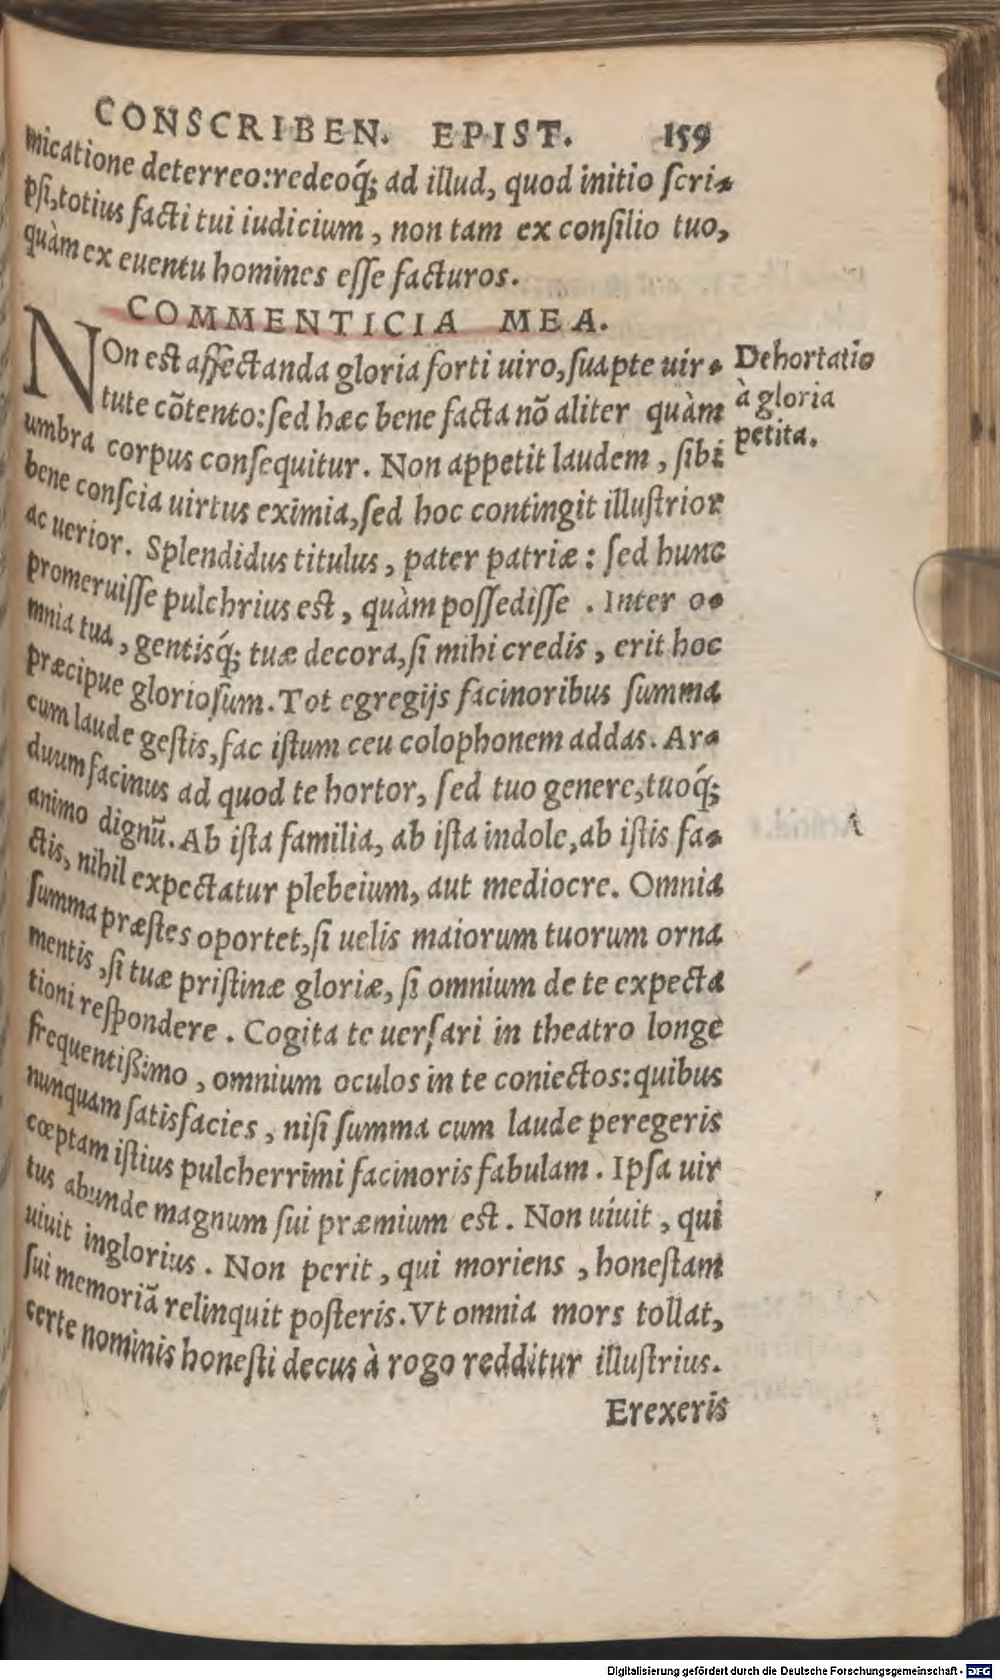 CONSCRIBEN. EPIST. 159
micatione deterreo:redeoq́; ad illud, quod initio ſcri-
pſi, totius facti tui iudicium, non tam ex conſilio tuo,
quàm ex euentu homines eſſe facturos.
COMMENTICIA MEA.
NOn est affectanda gloria forti uiro, ſuapte uir-
tute cõtento: ſed hæc bene facta nõ aliter quàm
umbra corpus conſequitur. Non appetit laudem, ſibi
bene conſcia uirtus eximia, ſed hoc contingit illuſtrior
ac uerior. Splendidus titulus, pater patriæ: ſed hunc
promeruiſſe pulchrius est, quàm poſſediſſe. Inter o-
mnia tua, gentisq́; tuæ decora, ſi mihi credis, erit hoc
præcipue glorioſum. Tot egregijs facinoribus ſumma
cum laude geſtis, fac iſtum ceu colophonem addas. Ar-
duum facinus ad quod te hortor, ſed tuo genere, tuoq́;
animo dignũ. Ab iſta familia, ab iſta indole, ab iſtis fa-
ctis, nihil expectatur plebeium, aut mediocre. Omnia
ſumma præſtes oportet, ſi uelis maiorum tuorum orna
mentis, ſi tuæ priſtinæ gloriæ, ſi omnium de te expecta
tioni reſpondere. Cogita te uerſari in theatro longe
frequentißimo, omnium oculos in te coniectos: quibus
nunquam ſatisfacies, niſi ſumma cum laude peregeris
cœptam iſtius pulcherrimi facinoris fabulam. Ipſa uir
tus abunde magnum ſui præmium est. Non uiuit, qui
uiuit inglorius. Non perit, qui moriens, honeſtam
ſui memoriã relinquit poſteris. Vt omnia mors tollat,
certe nominis honeſti decus à rogo redditur illuſtrius.
Erexeris
Dehortatio
à gloria
petita.
Digitalisierung gefördert durch die Deutsche Forschungsgemeinschaft - DFG